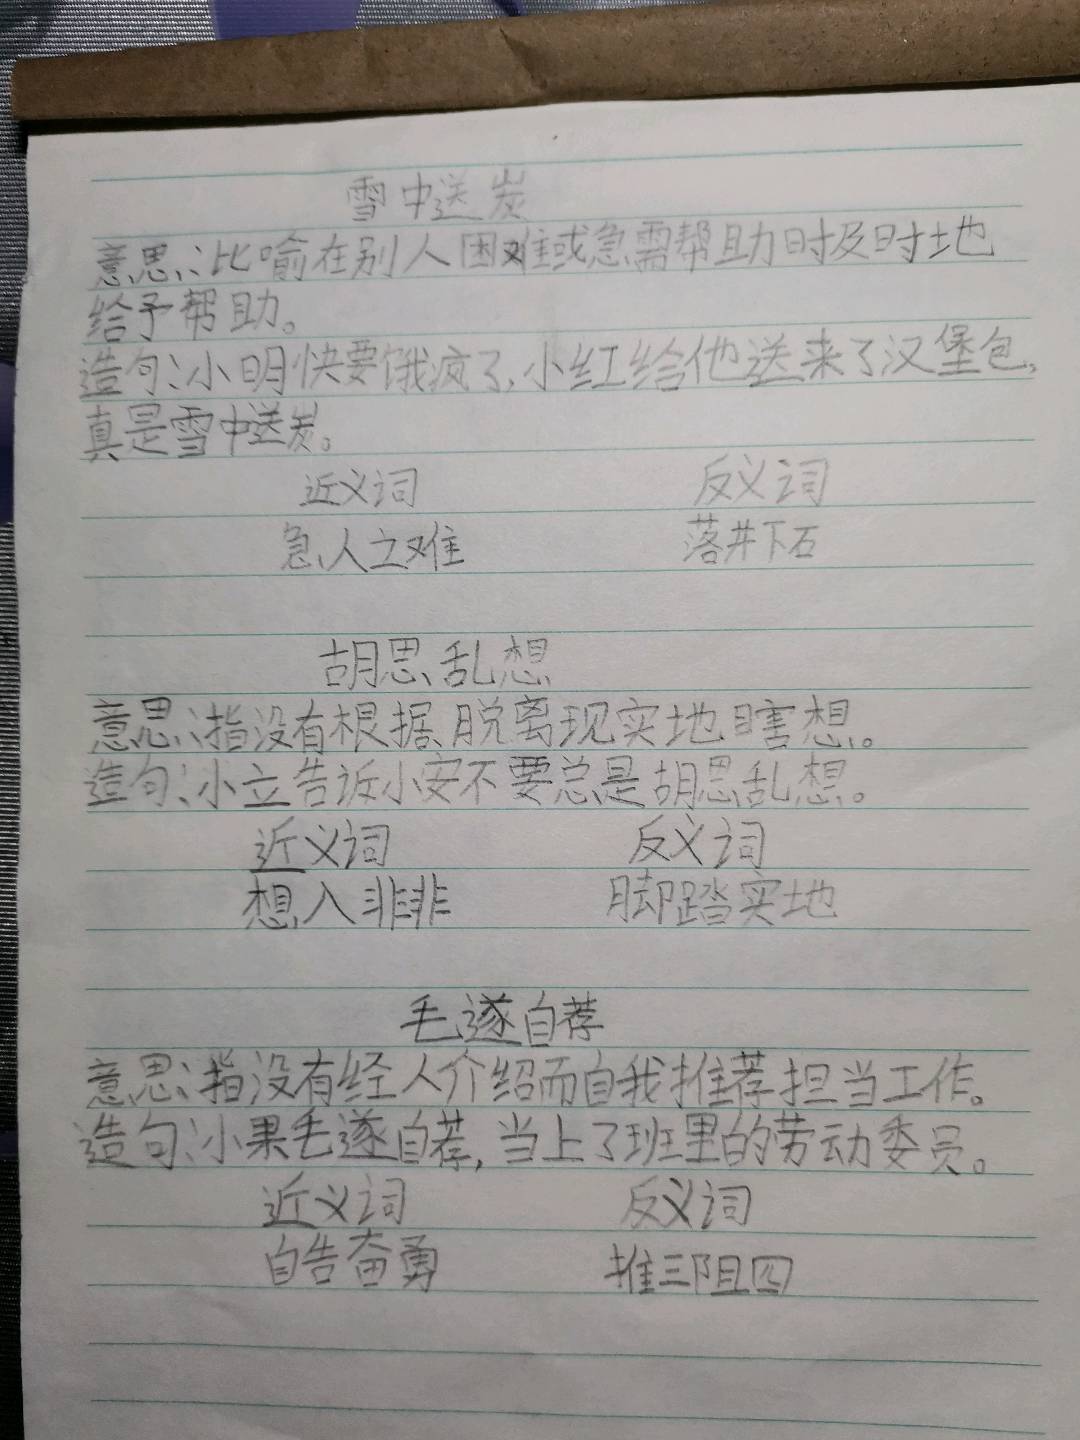 雪中送炭
意思:比喻在别人困难或急需帮助时及时地
给予帮助。
造句:小明快要饿疯了,小红给他送来了汉堡包,
真是雪中送炭。
近义词 反义词
急人之难 落井下石
胡思乱想
意思:指没有根据、脱离现实地瞎想。
造句:小立告诉小安不要总是胡思乱想。
近义词 反义词
想入非非 脚踏实地
毛遂自荐
意思:指没有经人介绍而自我推荐担当工作。
造句:小果毛遂自荐,当上了班里的劳动委员。
近义词 反义词
自告奋勇 推三阻四